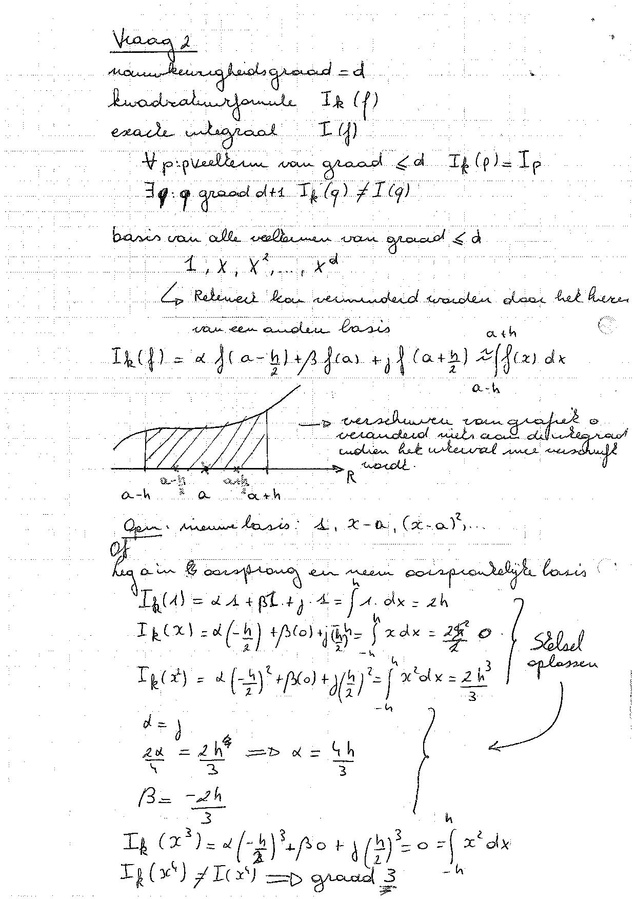 Vraag 2
nauwkeurigheidsgraad = d
kwadratuurformule Ik(f)
exacte integraal I(f)
∀p: p veelterm van graad ≤ d Ik(p) = Ip
∃q: q graad d+1 Ik(q) ≠ I(q)
basis van alle veeltermen van graad ≤ d
1, x, x², ..., x^d
↳ Rekenwerk kan verminderd worden door het kiezen
van een andere basis
Ik(f) = α f(a - h/2) + β f(a) + γ f(a + h/2) ≈ ∫_{a-h}^{a+h} f(x) dx
→ verschuiven van grafiek
veranderd niets aan de integraal
indien het interval mee verschuift
wordt.
a-h a-h/2 a a+h/2 a+h R
Opm: nieuwe basis: 1, x-a, (x-a)², ...
Of
Leg a in oorsprong en neem oorspronkelijke basis
Ik(1) = α 1 + β1 + γ · 1 = ∫_{-h}^{h} 1 · dx = 2h
Ik(x) = α(-h/2) + β(0) + γ(h/2) = ∫_{-h}^{h} x dx = 0
Ik(x²) = α(-h/2)² + β(0) + γ(h/2)² = ∫_{-h}^{h} x² dx = 2h³/3
Stelsel
oplossen
α = γ
2α/4 = 2h/3 ⟹ α = 4h/3
β = -2h/3
Ik(x³) = α(-h/2)³ + β0 + γ(h/2)³ = 0 = ∫_{-h}^{h} x² dx
Ik(x⁴) ≠ I(x⁴) ⟹ graad 3